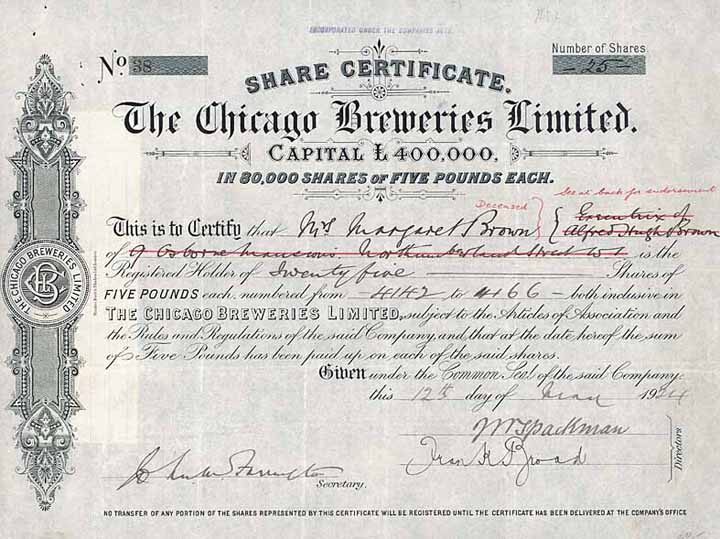 INCORPORATED UNDER THE COMPANIES ACTS.
No. 38
Number of Shares
-25-
SHARE CERTIFICATE.
The Chicago Breweries Limited.
CAPITAL £400,000,
IN 80,000 SHARES OF FIVE POUNDS EACH.
See at back for endorsement
Deceased
This is to Certify that Mrs Margaret Brown Executrix of
Alfred Hugh Brown
of 9 Osborne Mansions Northumberland Street W1 is the
Registered Holder of Twenty five Shares of
FIVE POUNDS each, numbered from 4142 to 4166 both inclusive in
THE CHICAGO BREWERIES LIMITED, subject to the Articles of Association and
the Rules and Regulations of the said Company, and that at the date hereof the sum
of Five Pounds has been paid up on each of the said shares.
Given under the Common Seal of the said Company:
this 12th day of May 1924
THE CHICAGO BREWERIES LIMITED
Spackman
Broad
Directors
Secretary.
NO TRANSFER OF ANY PORTION OF THE SHARES REPRESENTED BY THIS CERTIFICATE WILL BE REGISTERED UNTIL THE CERTIFICATE HAS BEEN DELIVERED AT THE COMPANY'S OFFICE